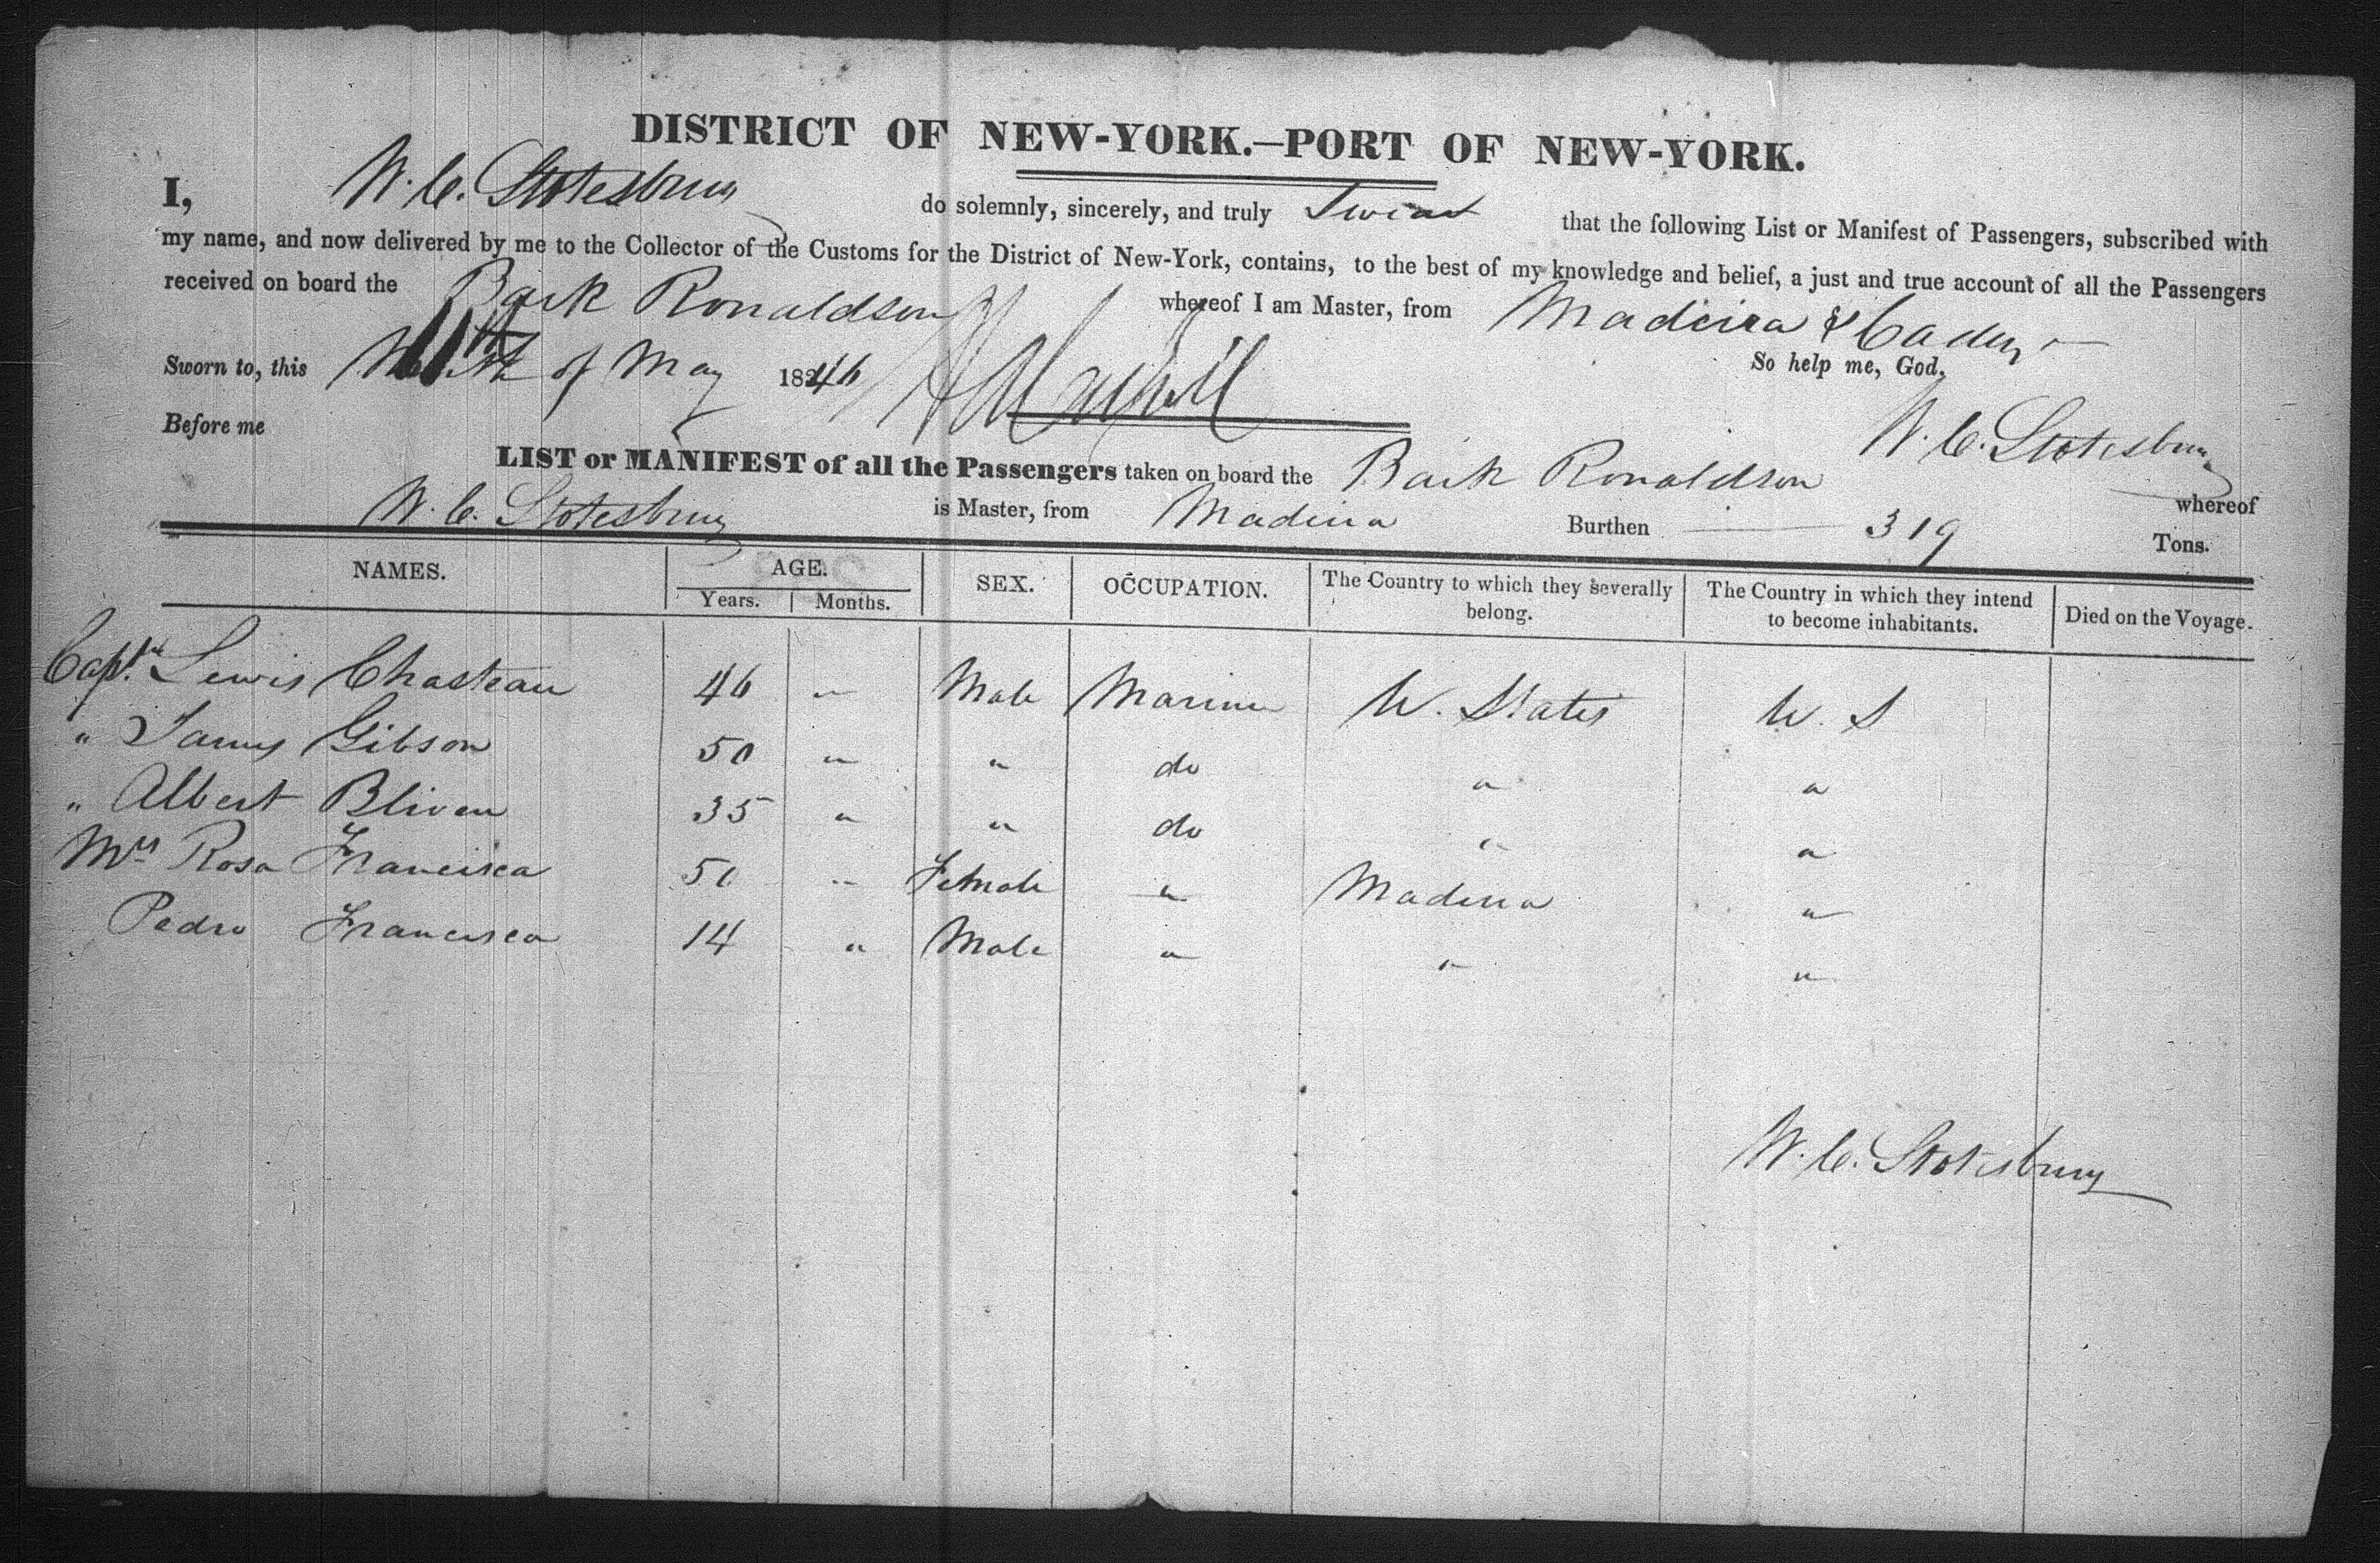 DISTRICT OF NEW-YORK.—PORT OF NEW-YORK.
I, W. C. Stotesbury do solemnly, sincerely, and truly Swear that the following List or Manifest of Passengers, subscribed with
my name, and now delivered by me to the Collector of the Customs for the District of New-York, contains, to the best of my knowledge and belief, a just and true account of all the Passengers
received on board the Bark Ronaldson whereof I am Master, from Madeira & Cadiz
So help me, God.
Sworn to, this of May 1846
Before me
W. C. Stotesbury
LIST or MANIFEST of all the Passengers taken on board the Bark Ronaldson whereof
W. C. Stotesbury is Master, from Madeira Burthen 319 Tons.
NAMES. AGE. SEX. OCCUPATION. The Country to which they severally belong. The Country in which they intend to become inhabitants. Died on the Voyage.
Years. Months.
Capt. Lewis Chasteau 46 " Male Mariner U. States U. S
" James Gibson 50 " " do " "
" Albert Bliven 35 " " do " "
Mrs Rosa Francisca 50 " Female " Madeira "
Pedro Francisca 14 " Male " " "
W. C. Stotesbury